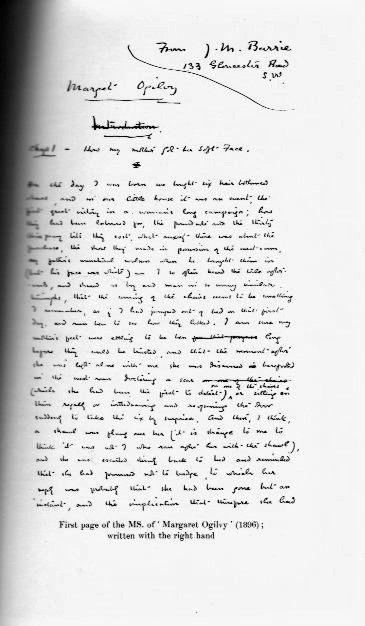 From J. M. Barrie
133 Gloucester Road
S.W.
Margaret Ogilvy
Introduction.
Chap I - How my mother got her soft Face.
On the day I was born we bought six hair-bottomed
chairs, and in our little house it was an event, the
first great victory in a woman's long campaign; how
they had been laboured for, the pound-note and the thirty
threepenny bits they cost, what anxiety there was about the
purchase, the show they made in possession of the west room,
my father's unnatural coolness when he brought them in
(but his face was white) - I so often heard the tale after-
wards, and shared as boy and man in so many similar
triumphs, that the coming of the chairs seems to be something
I remember, as if I had jumped out of bed on that first
day, and run ben to see how they looked. I am sure my
mother's feet were ettling to be ben long
before they could be trusted, and that the moment after
she was left alone with me she was discovered barefooted
in the west room, doctoring a scar
on one of the chairs
(which she had been the first to detect), or sitting on
them royally, or withdrawing and re-opening the door
suddenly to take the six by surprise. And then, I think,
a shawl was flung over her (it is strange to me to
think it was not I who ran after her with the shawl),
and she was escorted sternly back to bed and reminded
that she had promised not to budge, to which her
reply was probably that she had been gone but an
instant, and the implication that therefore she had
First page of the MS. of 'Margaret Ogilvy' (1896);
written with the right hand